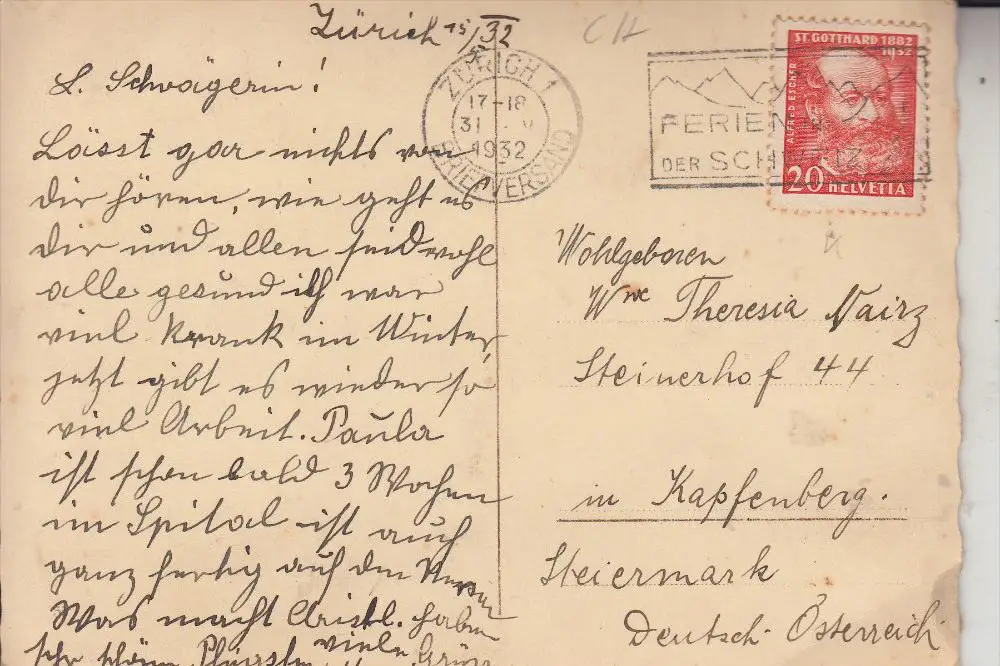 Zürich 15/32
CH
L. Schwägerin!
Lässt gar nichts von
dir hören, wie geht es
dir und allen seid wohl
alle gesund ich war
viel krank im Winter,
jetzt gibt es wieder so
viel Arbeit. Paula
ist schon bald 3 Wochen
im Spital ist auch
ganz fertig auf den Nerven
Was macht Christl. haben
sehr schöne Pfingsten viele Grüsse
ZÜRICH 1
17-18
31 V
1932
BRIEFVERSAND
FERIEN
DER SCHWEIZ
ST. GOTTHARD 1882
1932
ALFRED ESCHER
20 HELVETIA
Wohlgeboren
Wwe Theresia Nairz
Steinerhof 44
in Kapfenberg.
Steiermark
Deutsch-Österreich